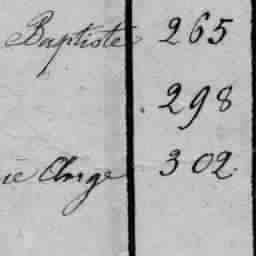 Baptiste 265
298
ie Ange 302